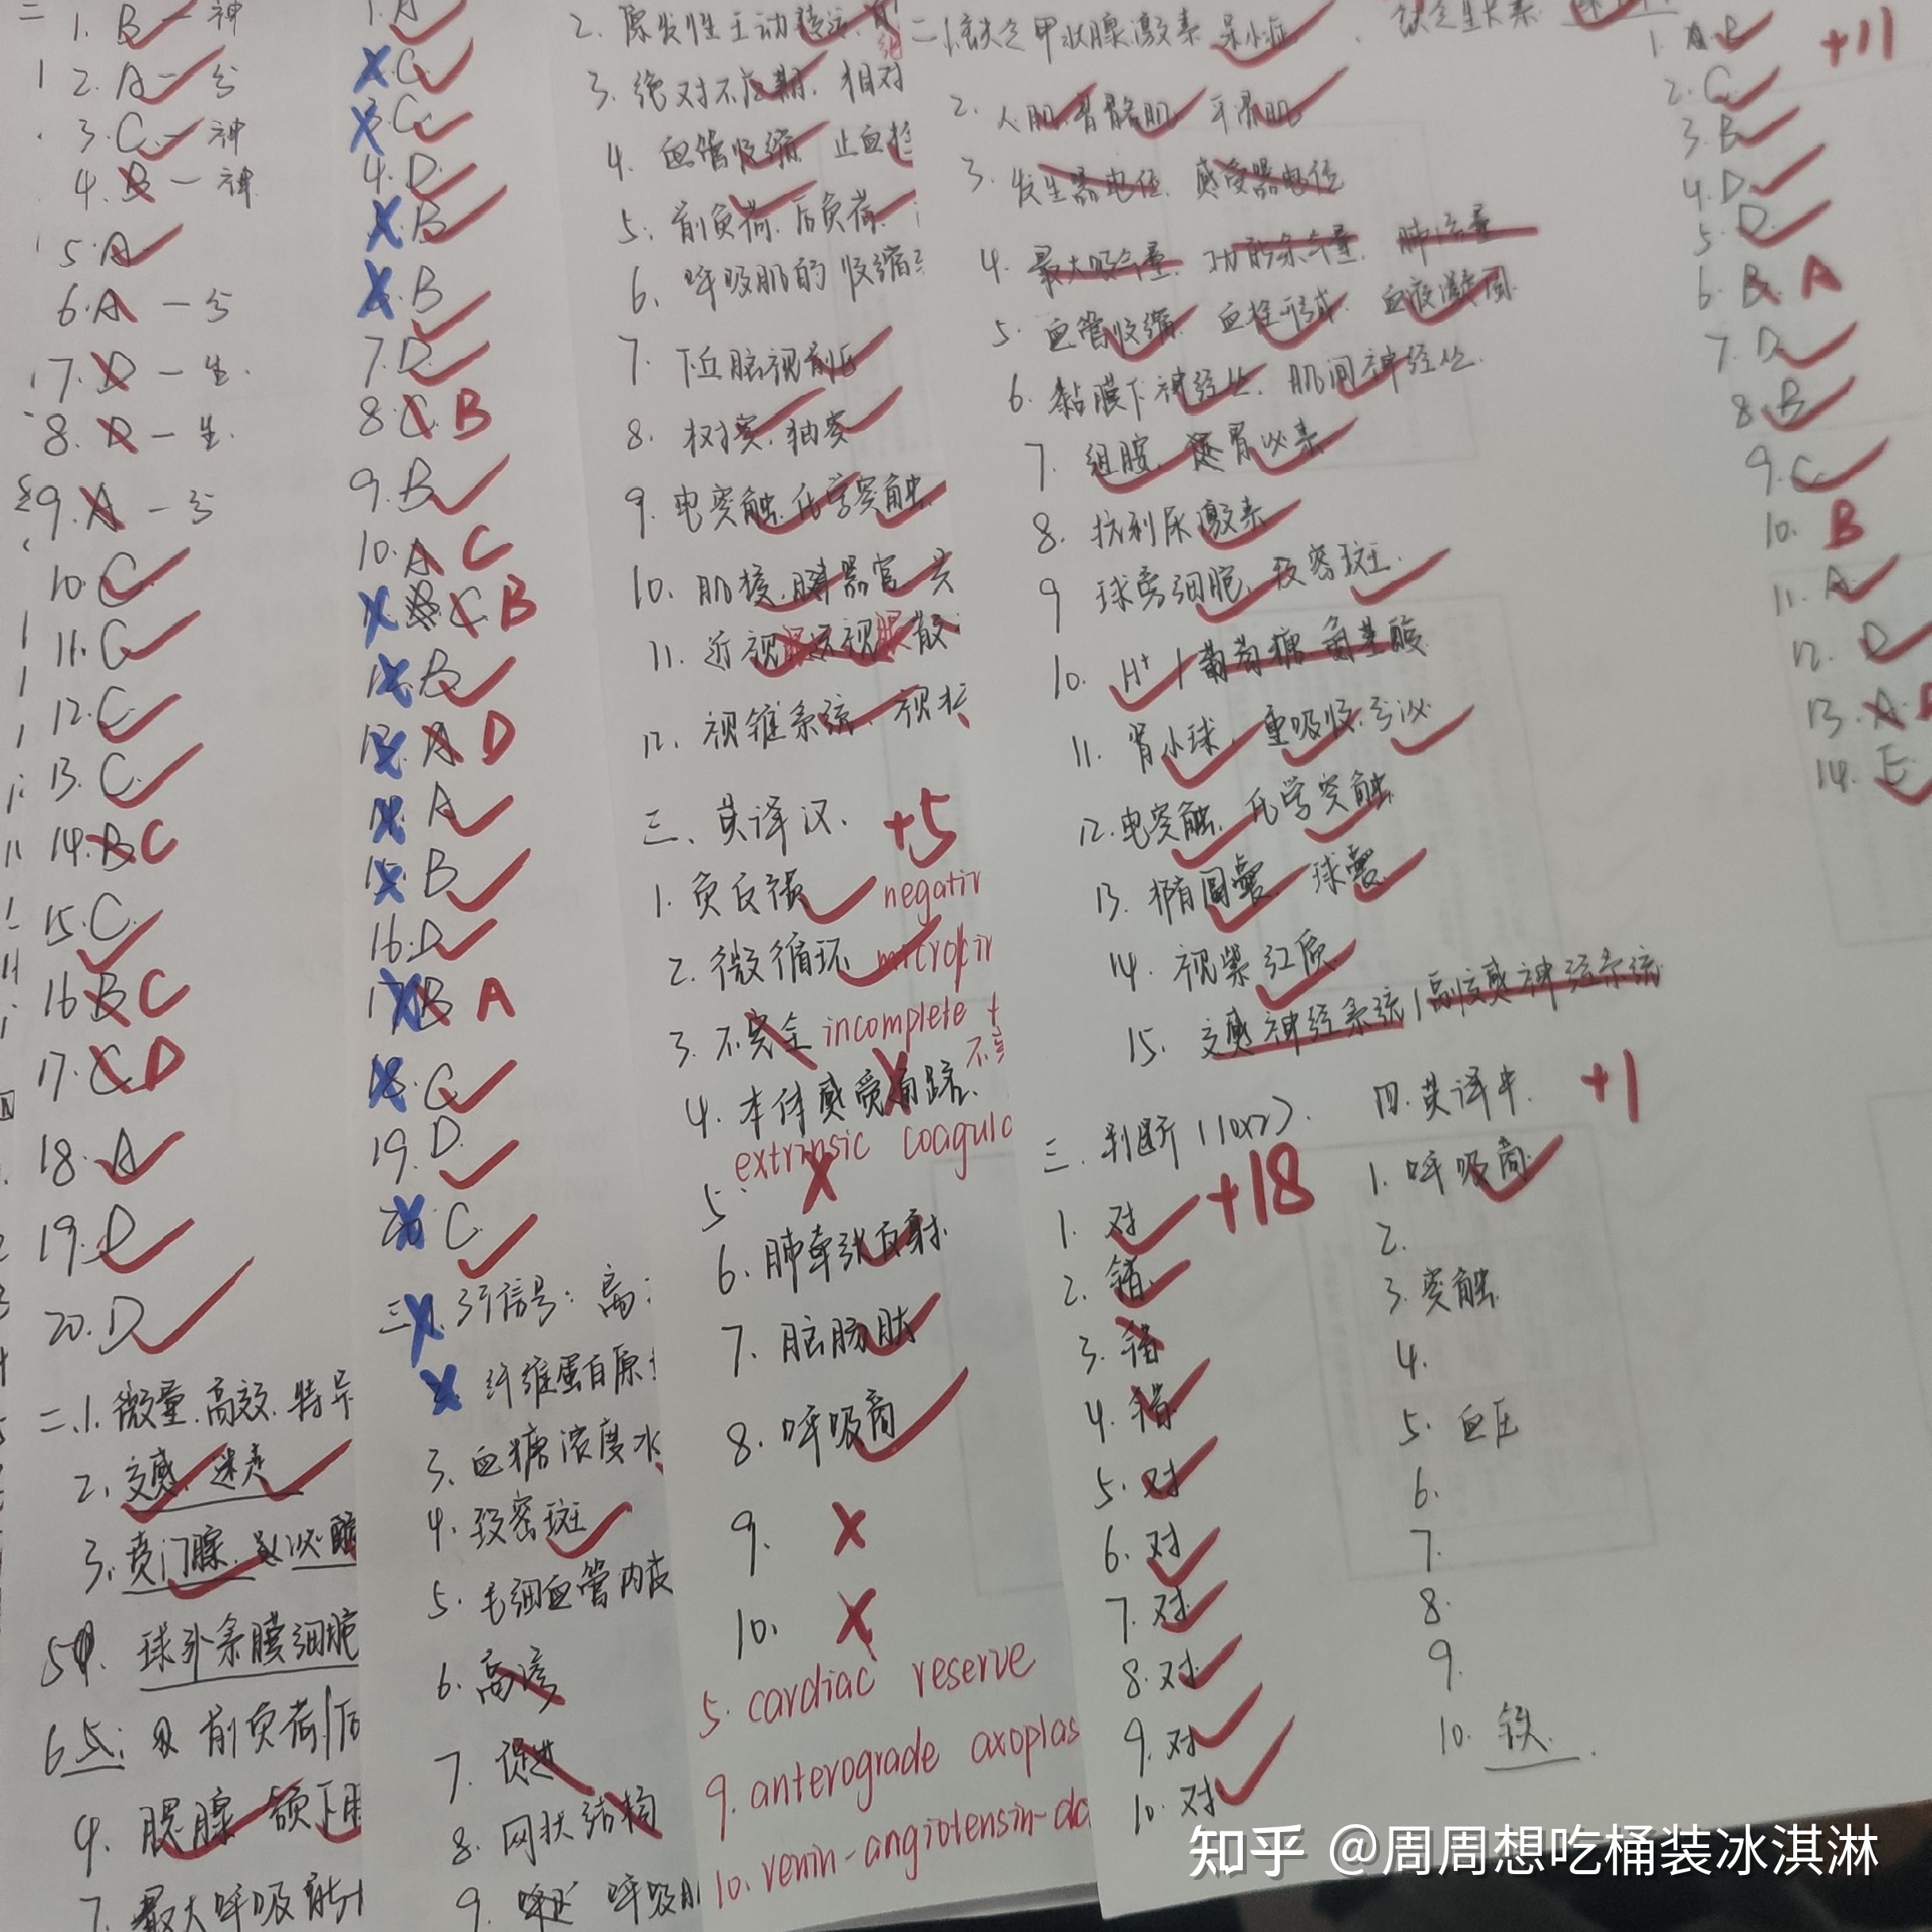 1. B - 神
2. A - 分
3. C - 神
4. B - 神
5. A
6. A - 分
7. D - 生.
8. D - 生.
9. A - 分
10. C
11. C
12. C
13. C
14. B C
15. C
16 B C
17. C D
18. A
19. D
20. D
二、1. 微量.高效.特异
2. 交感. 迷走
3. 贲门腺.
5 球外系膜细胞
6 前负荷/后
4. 腮腺 颌下
7. 最大呼吸
1. A
C
3. C
4. D
B
B
7. D
8. C B
9. B
10. A C
C B
B
A D
A
B
16. D
17 B A
18. C
19. D
20 C
信号: 高
纤维蛋白原
3. 血糖浓度水
4. 致密斑
5. 毛细血管内皮
6.
7. 促进
8. 网状结构
9. 呼吸肌
2. 原发性主动转运
3. 绝对不应期. 相对
4. 血管收缩 止血栓
5. 前负荷. 后负荷.
6. 呼吸肌的收缩
7. 下丘脑视前区
8. 树突. 轴突
9. 电突触. 化学突触
10. 肌梭. 腱器官
11. 近视 远视 散
12. 视锥系统. 视杆
三. 英译汉. +5
1. 负反馈 negativ
2. 微循环 microcir
3. 不完全 incomplete t
4. 本体感受
extrinsic coagula
5.
6. 肺牵张反射.
7. 脑肠肽
8. 呼吸商
9.
10.
5. cardiac reserve
9. anterograde axoplas
10. renin-angiotensin-
二 1. 缺乏甲状腺激素 呆小症
2. 心肌 骨骼肌 平滑肌
3. 发生器电位. 感受器电位
4. 最大吸气量. 功能余气量. 肺活量
5 血管收缩. 血栓形成. 血液凝固
6. 黏膜下神经丛. 肌间神经丛.
7. 组胺. 促胃泌素
8. 抗利尿激素
9 球旁细胞. 致密斑.
10. H⁺ / 葡萄糖 氨基酸
11. 肾小球. 重吸收. 分泌
12. 电突触. 化学突触
13. 椭圆囊. 球囊
14. 视紫红质
15. 交感神经系统/副交感神经系统
三. 判断 (10x2).
+18
1. 对
2. 错
3. 错
4. 错
5. 对
6. 对
7. 对
8. 对
9. 对
10. 对
四. 英译中. +1
1. 呼吸商
2.
3. 突触
4.
5. 血压
6.
7.
8.
9.
10. 铁
+11
2. C
3. B
4. D
5. D
6. B A
7. D
8. B
9. C
10. B
11. A
12. D
13. A
14. E
知乎 @周周想吃桶装冰淇淋